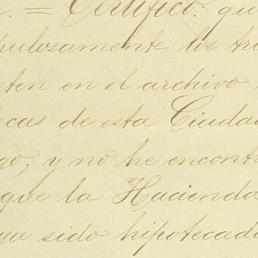 = Certifico: qu
pulosamente los tr
ten en el archivo
ecas de esta Ciudad
go, y no he encontr
que la Hacienda
ya sido hipotecad